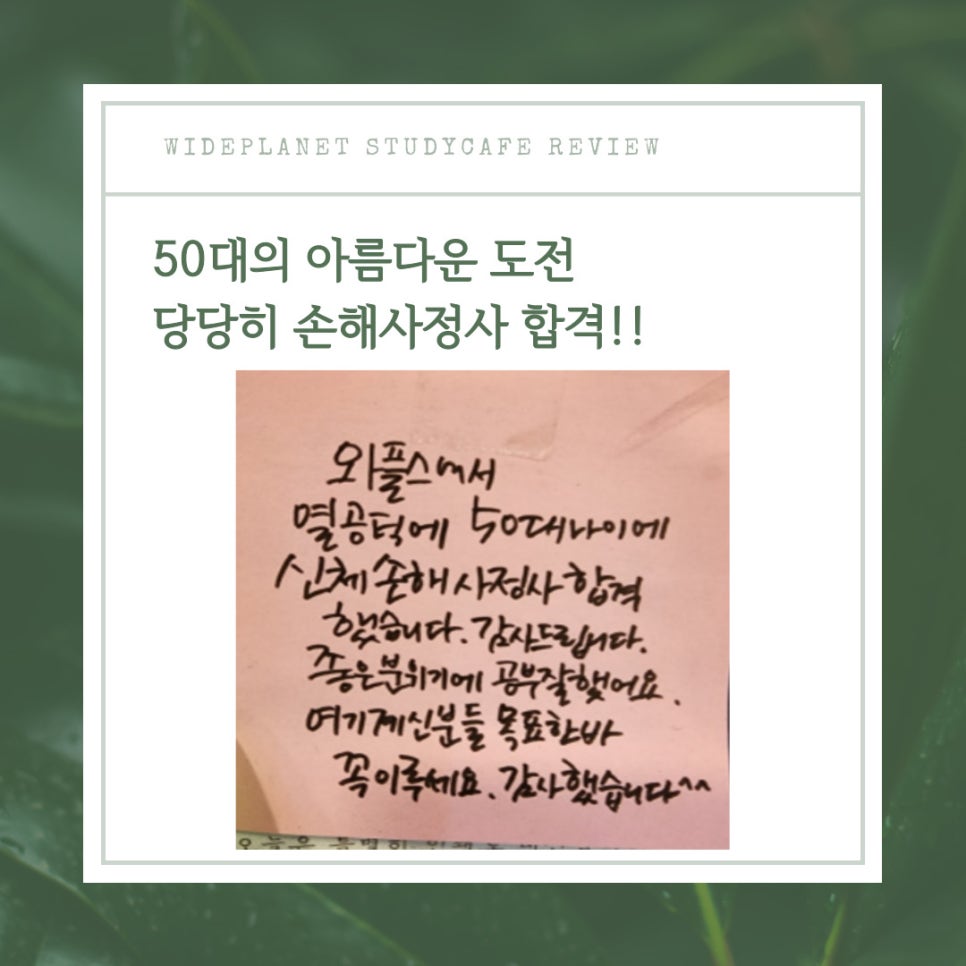 WIDEPLANET STUDYCAFE REVIEW
50대의 아름다운 도전
당당히 손해사정사 합격!!
와플스에서
열공턱에 50대나이에
신체손해사정사합격
했습니다. 감사드립니다.
좋은분위기에 공부잘했어요.
여기계신분들 목표한바
꼭이루세요. 감사했습니다^^